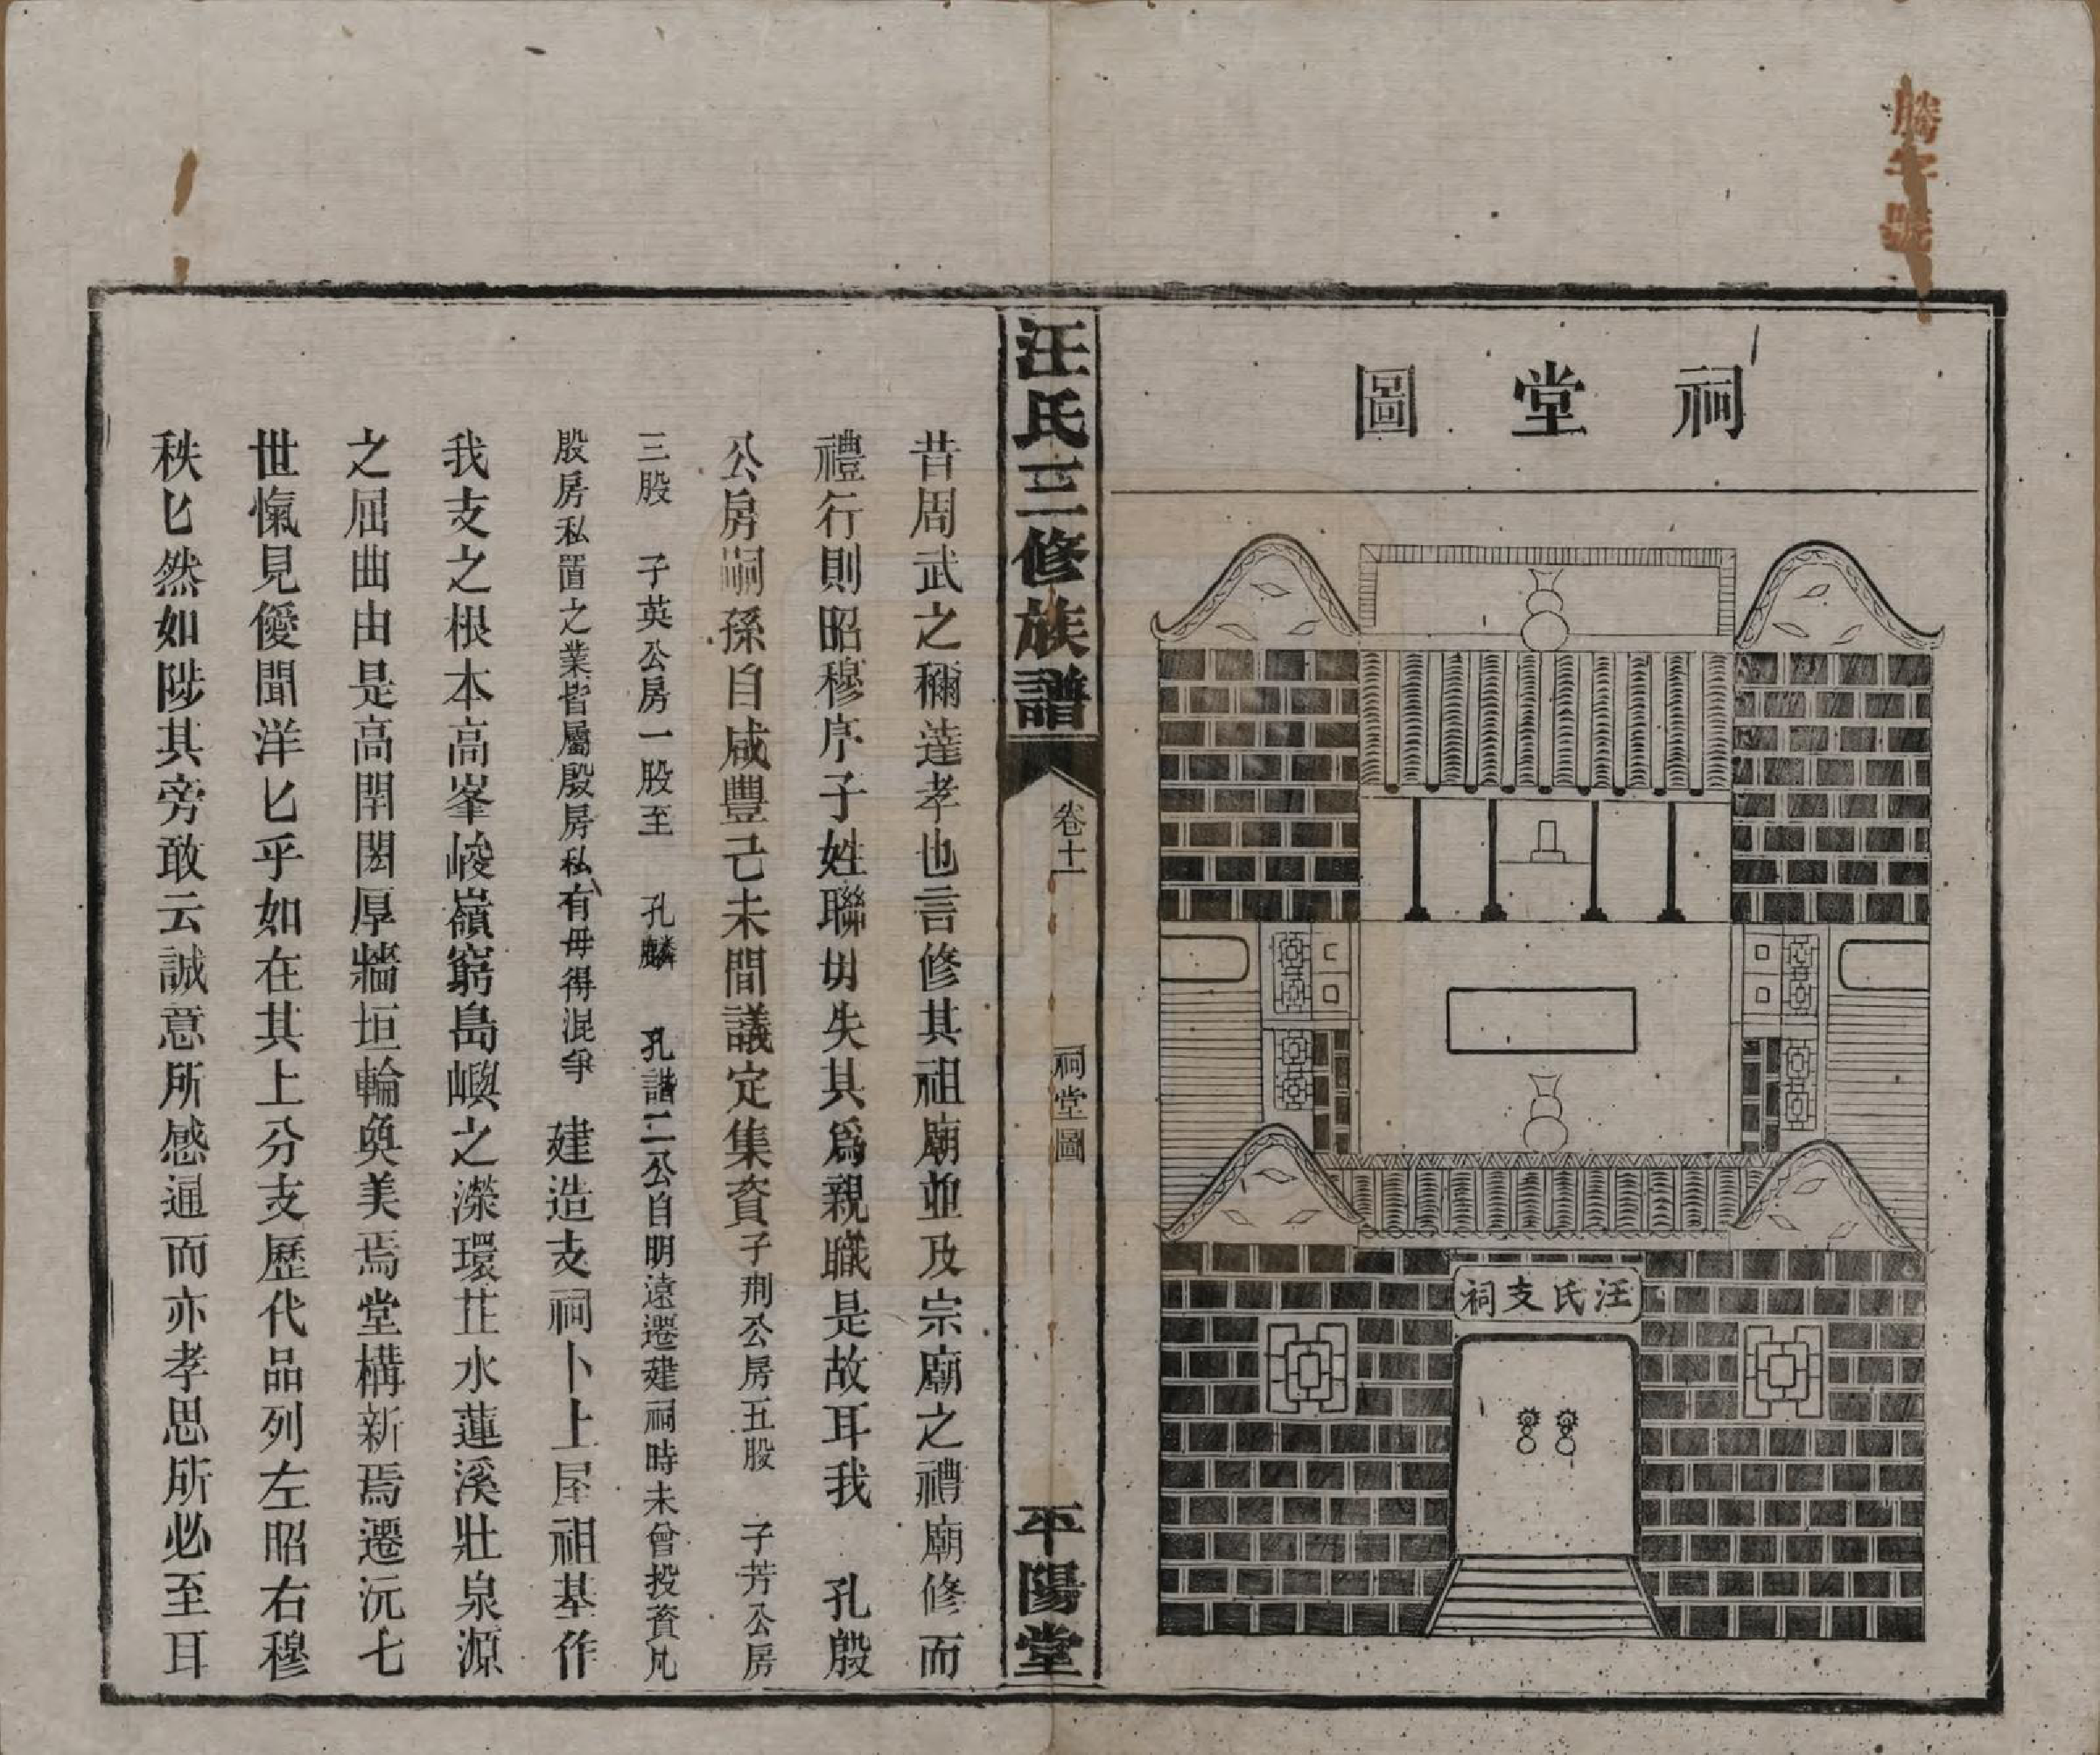 勝字號
祠堂圖
汪氏支祠
汪氏三修族譜
卷十一
祠堂圖
平陽堂
昔周武之稱達孝也言修其祖廟並及宗廟之禮廟修而
禮行則昭穆序子姓聯毋失其爲親職是故耳我 孔殷
公房嗣孫自咸豐己未間議定集資子荆公房五股 子芳公房
三股 子英公房一股至 孔麟 孔諧二公自明遠遷建祠時未曾投資凡
殷房私置之業皆屬殷房私有毋得混爭 建造支祠卜上屋祖基作
我支之根本高峯峻嶺窮島嶼之濴環芷水蓮溪壯泉源
之屈曲由是高閈閎厚牆垣輪奐美焉堂構新焉遷沅七
世愾見僾聞洋匕乎如在其上分支歷代品列左昭右穆
秩匕然如陟其旁敢云誠意所感通而亦孝思所必至耳